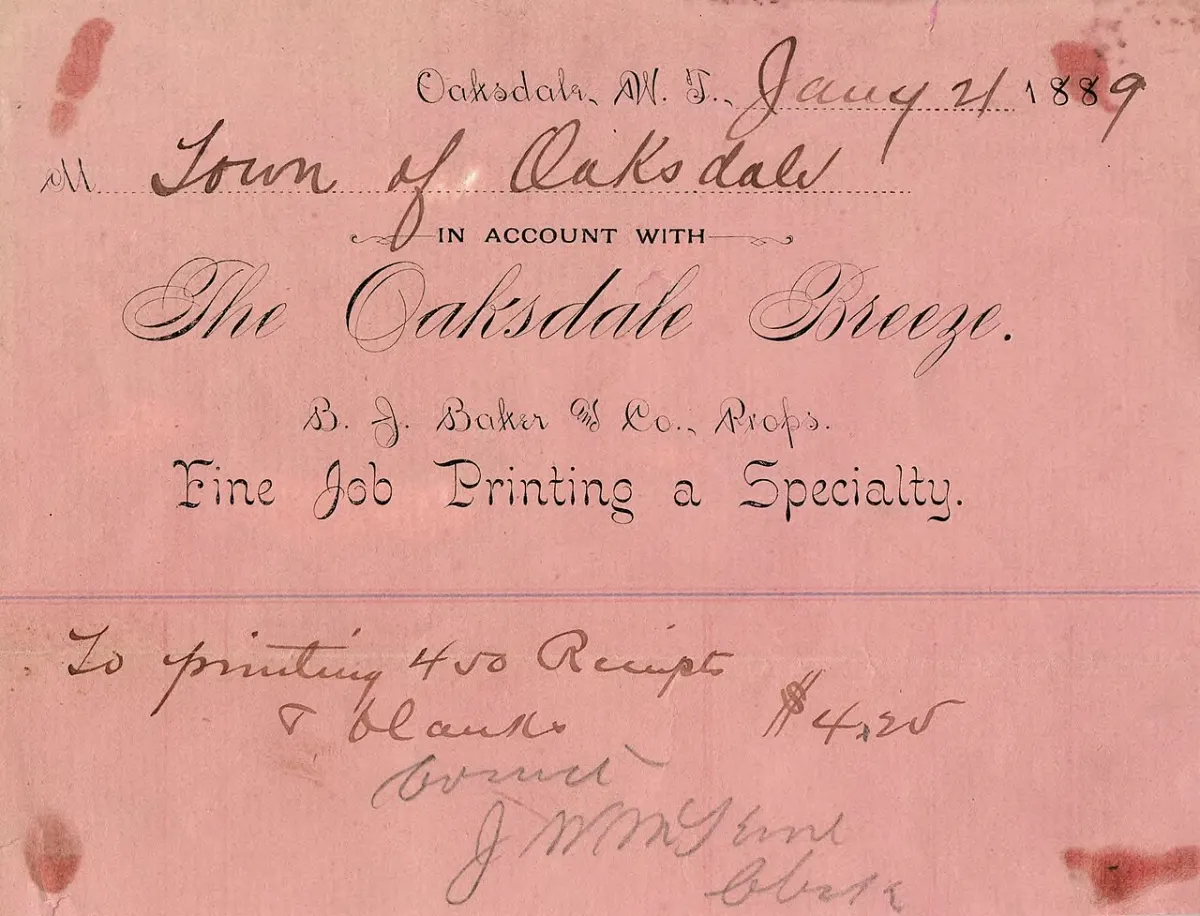 Oaksdale, W. T., Jany 21 1889
M Town of Oaksdale
IN ACCOUNT WITH
The Oaksdale Breeze.
B. J. Baker and Co., Props.
Fine Job Printing a Specialty.
To printing 450 Receipts
& blanks $4.25
Correct
J W
Clerk